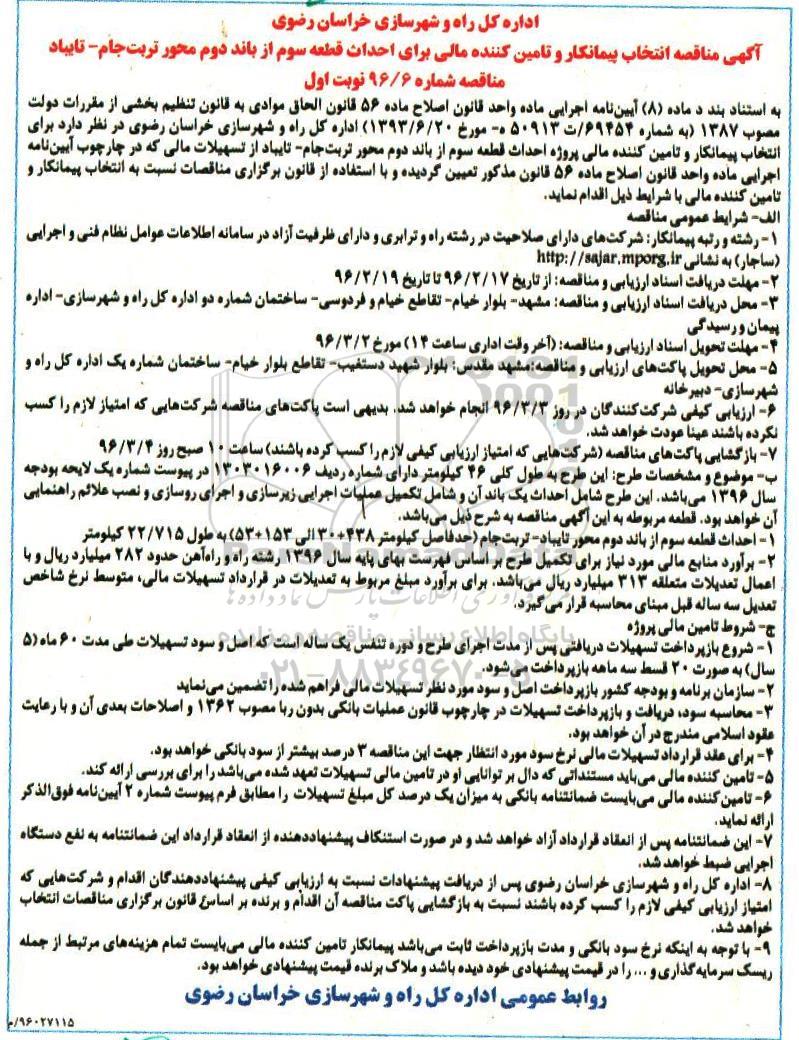 اداره کل راه و شهرسازی خراسان رضوی
آگهی مناقصه انتخاب پیمانکار و تامین کننده مالی برای احداث قطعه سوم از باند دوم محور تربت‌جام- تایباد
مناقصه شماره ۹۶/۶ نوبت اول
به استناد بند د ماده (۸) آیین‌نامه اجرایی ماده واحد قانون اصلاح ماده ۵۶ قانون الحاق موادی به قانون تنظیم بخشی از مقررات دولت
مصوب ۱۳۸۷ (به شماره ۶۹۴۵۴/ت ۵۰۹۱۳ ه- مورخ ۱۳۹۳/۶/۲۰) اداره کل راه و شهرسازی خراسان رضوی در نظر دارد برای
انتخاب پیمانکار و تامین کننده مالی پروژه احداث قطعه سوم از باند دوم محور تربت‌جام- تایباد از تسهیلات مالی که در چارچوب آیین‌نامه
اجرایی ماده واحد قانون اصلاح ماده ۵۶ قانون مذکور تعیین گردیده و با استفاده از قانون برگزاری مناقصات نسبت به انتخاب پیمانکار و
تامین کننده مالی با شرایط ذیل اقدام نماید.
الف- شرایط عمومی مناقصه
۱- رشته و رتبه پیمانکار: شرکت‌های دارای صلاحیت در رشته راه و ترابری و دارای ظرفیت آزاد در سامانه اطلاعات عوامل نظام فنی و اجرایی
(ساجار) به نشانی http://sajar.mporg.ir
۲- مهلت دریافت اسناد ارزیابی و مناقصه: از تاریخ ۹۶/۲/۱۷ تا تاریخ ۹۶/۲/۱۹
۳- محل دریافت اسناد ارزیابی و مناقصه: مشهد- بلوار خیام- تقاطع خیام و فردوسی- ساختمان شماره دو اداره کل راه و شهرسازی- اداره
پیمان و رسیدگی
۴- مهلت تحویل اسناد ارزیابی و مناقصه: (آخر وقت اداری ساعت ۱۴) مورخ ۹۶/۳/۲
۵- محل تحویل پاکت‌های ارزیابی و مناقصه:مشهد مقدس: بلوار شهید دستغیب- تقاطع بلوار خیام- ساختمان شماره یک اداره کل راه و
شهرسازی- دبیرخانه
۶- ارزیابی کیفی شرکت‌کنندگان در روز ۹۶/۳/۳ انجام خواهد شد. بدیهی است پاکت‌های مناقصه شرکت‌هایی که امتیاز لازم را کسب
نکرده باشند عینا عودت خواهد شد.
۷- بازگشایی پاکت‌های مناقصه (شرکت‌هایی که امتیاز ارزیابی کیفی لازم را کسب کرده باشند) ساعت ۱۰ صبح روز ۹۶/۳/۴
ب- موضوع و مشخصات طرح: این طرح به طول کلی ۴۶ کیلومتر دارای شماره ردیف ۱۳۰۳۰۱۶۰۰۶ در پیوست شماره یک لایحه بودجه
سال ۱۳۹۶ می‌باشد. این طرح شامل احداث یک باند آن و شامل تکمیل عملیات اجرایی زیرسازی و اجرای روسازی و نصب علائم راهنمایی
آن خواهد بود. قطعه مربوطه به این آگهی مناقصه به شرح ذیل می‌باشد.
۱- احداث قطعه سوم از باند دوم محور تایباد- تربت‌جام (حدفاصل کیلومتر ۴۳۸+۳۰ الی ۱۵۳+۵۳) به طول ۲۲/۷۱۵ کیلومتر
۲- برآورد منابع مالی مورد نیاز برای تکمیل طرح بر اساس فهرست بهای پایه سال ۱۳۹۶ رشته راه و راه‌آهن حدود ۲۸۲ میلیارد ریال و با
اعمال تعدیلات متعلقه ۳۱۳ میلیارد ریال می‌باشد. برای برآورد مبلغ مربوط به تعدیلات در قرارداد تسهیلات مالی، متوسط نرخ شاخص
تعدیل سه ساله قبل مبنای محاسبه قرار می‌گیرد.
ج- شروط تامین مالی پروژه
۱- شروع بازپرداخت تسهیلات دریافتی پس از مدت اجرای طرح و دوره تنفس یک ساله است که اصل و سود تسهیلات طی مدت ۶۰ ماه (۵
سال) به صورت ۲۰ قسط سه ماهه بازپرداخت می‌شود.
۲- سازمان برنامه و بودجه کشور بازپرداخت اصل و سود مورد نظر تسهیلات مالی فراهم شده را تضمین می‌نماید
۳- محاسبه سود، دریافت و بازپرداخت تسهیلات در چارچوب قانون عملیات بانکی بدون ربا مصوب ۱۳۶۲ و اصلاحات بعدی آن و با رعایت
عقود اسلامی مندرج در آن خواهد بود.
۴- برای عقد قرارداد تسهیلات مالی نرخ سود مورد انتظار جهت این مناقصه ۳ درصد بیشتر از سود بانکی خواهد بود.
۵- تامین کننده مالی می‌باید مستنداتی که دال بر توانایی او در تامین مالی تسهیلات تعهد شده می‌باشد را برای بررسی ارائه کند.
۶- تامین‌کننده مالی می‌بایست ضمانتنامه بانکی به میزان یک درصد کل مبلغ تسهیلات را مطابق فرم پیوست شماره ۲ آیین‌نامه فوق‌الذکر
ارائه نماید.
۷- این ضمانتنامه پس از انعقاد قرارداد آزاد خواهد شد و در صورت استنکاف پیشنهاددهنده از انعقاد قرارداد این ضمانتنامه به نفع دستگاه
اجرایی ضبط خواهد شد.
۸- اداره کل راه و شهرسازی خراسان رضوی پس از دریافت پیشنهادات نسبت به ارزیابی کیفی پیشنهاددهندگان اقدام و شرکت‌هایی که
امتیاز ارزیابی کیفی لازم را کسب کرده باشند نسبت به بازگشایی پاکت مناقصه آن اقدام و برنده بر اساس قانون برگزاری مناقصات انتخاب
خواهد شد.
۹- با توجه به اینکه نرخ سود بانکی و مدت بازپرداخت ثابت می‌باشد پیمانکار تامین کننده مالی می‌بایست تمام هزینه‌های مرتبط از جمله
ریسک سرمایه‌گذاری و ... را در قیمت پیشنهادی خود دیده باشد و ملاک برنده قیمت پیشنهادی خواهد بود.
روابط عمومی اداره کل راه و شهرسازی خراسان رضوی
۹۶۰۲۷۱۱۵/م
ParsNamadData
پایگاه اطلاع رسانی مناقصه و مزایده
۰۲۱-۸۸۳۴۹۶۷۰-۵